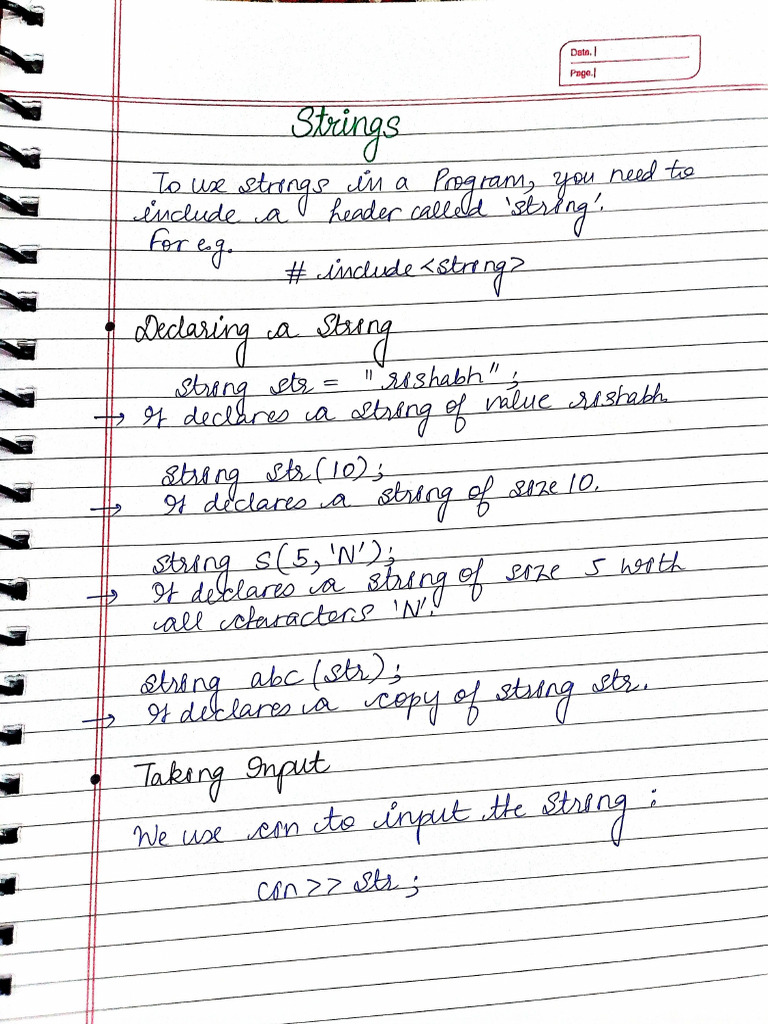 Date.
Page.
Strings
To use strings in a Program, you need to
include a header called 'string'.
For e.g.
# include <string>
• Declaring a String
string str = "rishabh";
→ It declares a string of value rishabh.
string str(10);
→ It declares a string of size 10.
string s(5, 'N');
→ It declares a string of size 5 with
all characters 'N'.
string abc(str);
→ It declares a copy of string str.
• Taking Input
We use cin to input the string :
cin>> str;